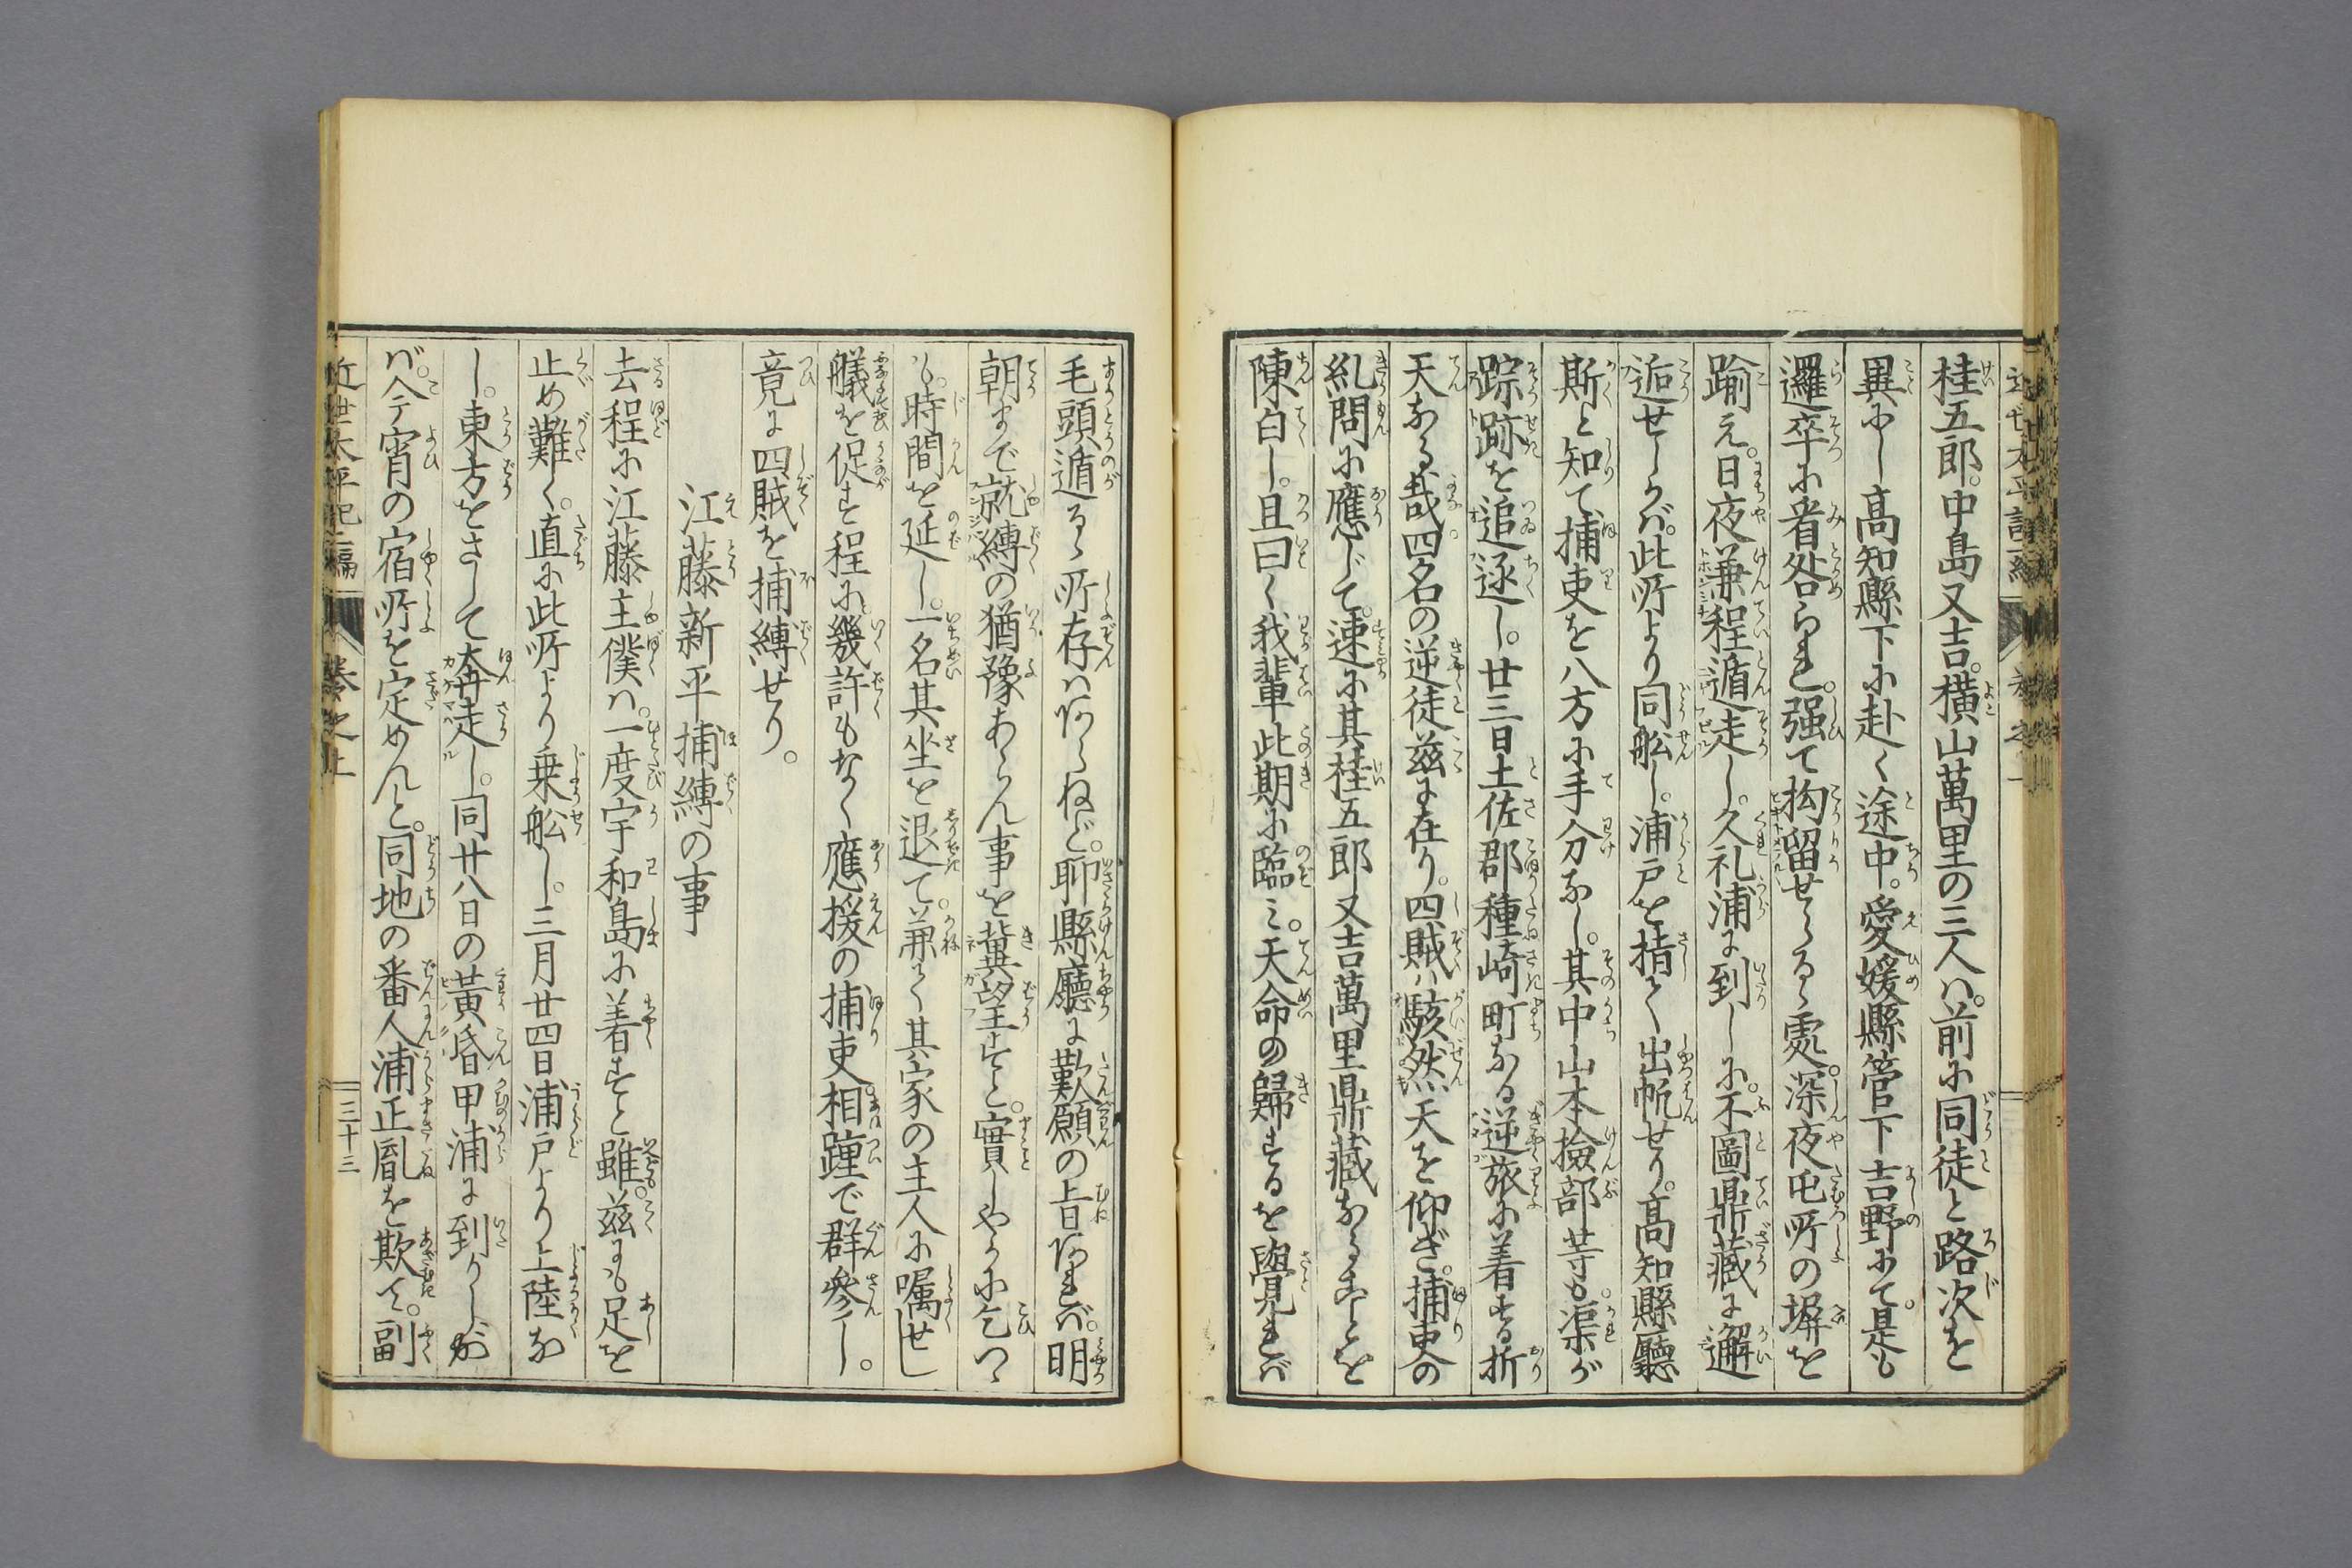 桂五郎。中島又吉。横山萬里の三人ハ。前に同徒と路次を
異にし高知縣下に赴く途中。愛媛縣管下吉野にて。是も
邏卒に看咎られ。强て拘留せらるゝ處。深夜屯所の塀を
踰え。日夜兼程遁走し。久礼浦に到りしに。不圖鼎藏に邂
逅せしかバ。此所より同舩し。浦戸を揩して出帆せり。高知縣廳
斯と知て捕吏を八方に手分なし。其中山本撿部等も。渠が
踪跡を追逐し。廿三日土佐郡種崎町なる逆旅に着する折
天なる哉。四名の逆徒茲に在り。四賊ハ駭然天を仰ぎ。捕吏の
糺問に應じて。速に其桂五郎又吉萬里鼎藏なることを
陳白し。且曰く我輩此期に臨ミ。天命の歸するを覺れバ
毛頭遁るゝ所存ハあらねど。聊縣廳に歎願の旨あれバ。明
朝まで就縛の猶豫あらん事を冀望すと。實しやかに乞つゝ
も。時間を延し。一名其坐を退て。兼て其家の主人に嘱せし
艤を促す程に。幾許もなく應援の捕吏。相踵で群參し。
竟に四賊を捕縛せり。
江藤新平捕縛の事
去程に江藤主僕ハ。一度宇和島に着すと雖。茲にも足を
止め難く。直に此所より乗舩し。三月廿四日浦戸より上陸な
し。東方をさして奔走し。同廿八日の黄昏甲浦に到りしが
バ。今宵の宿所を定めんと。同地の番人浦正胤を欺て。副
近世太平記二編
卷之上
三十三